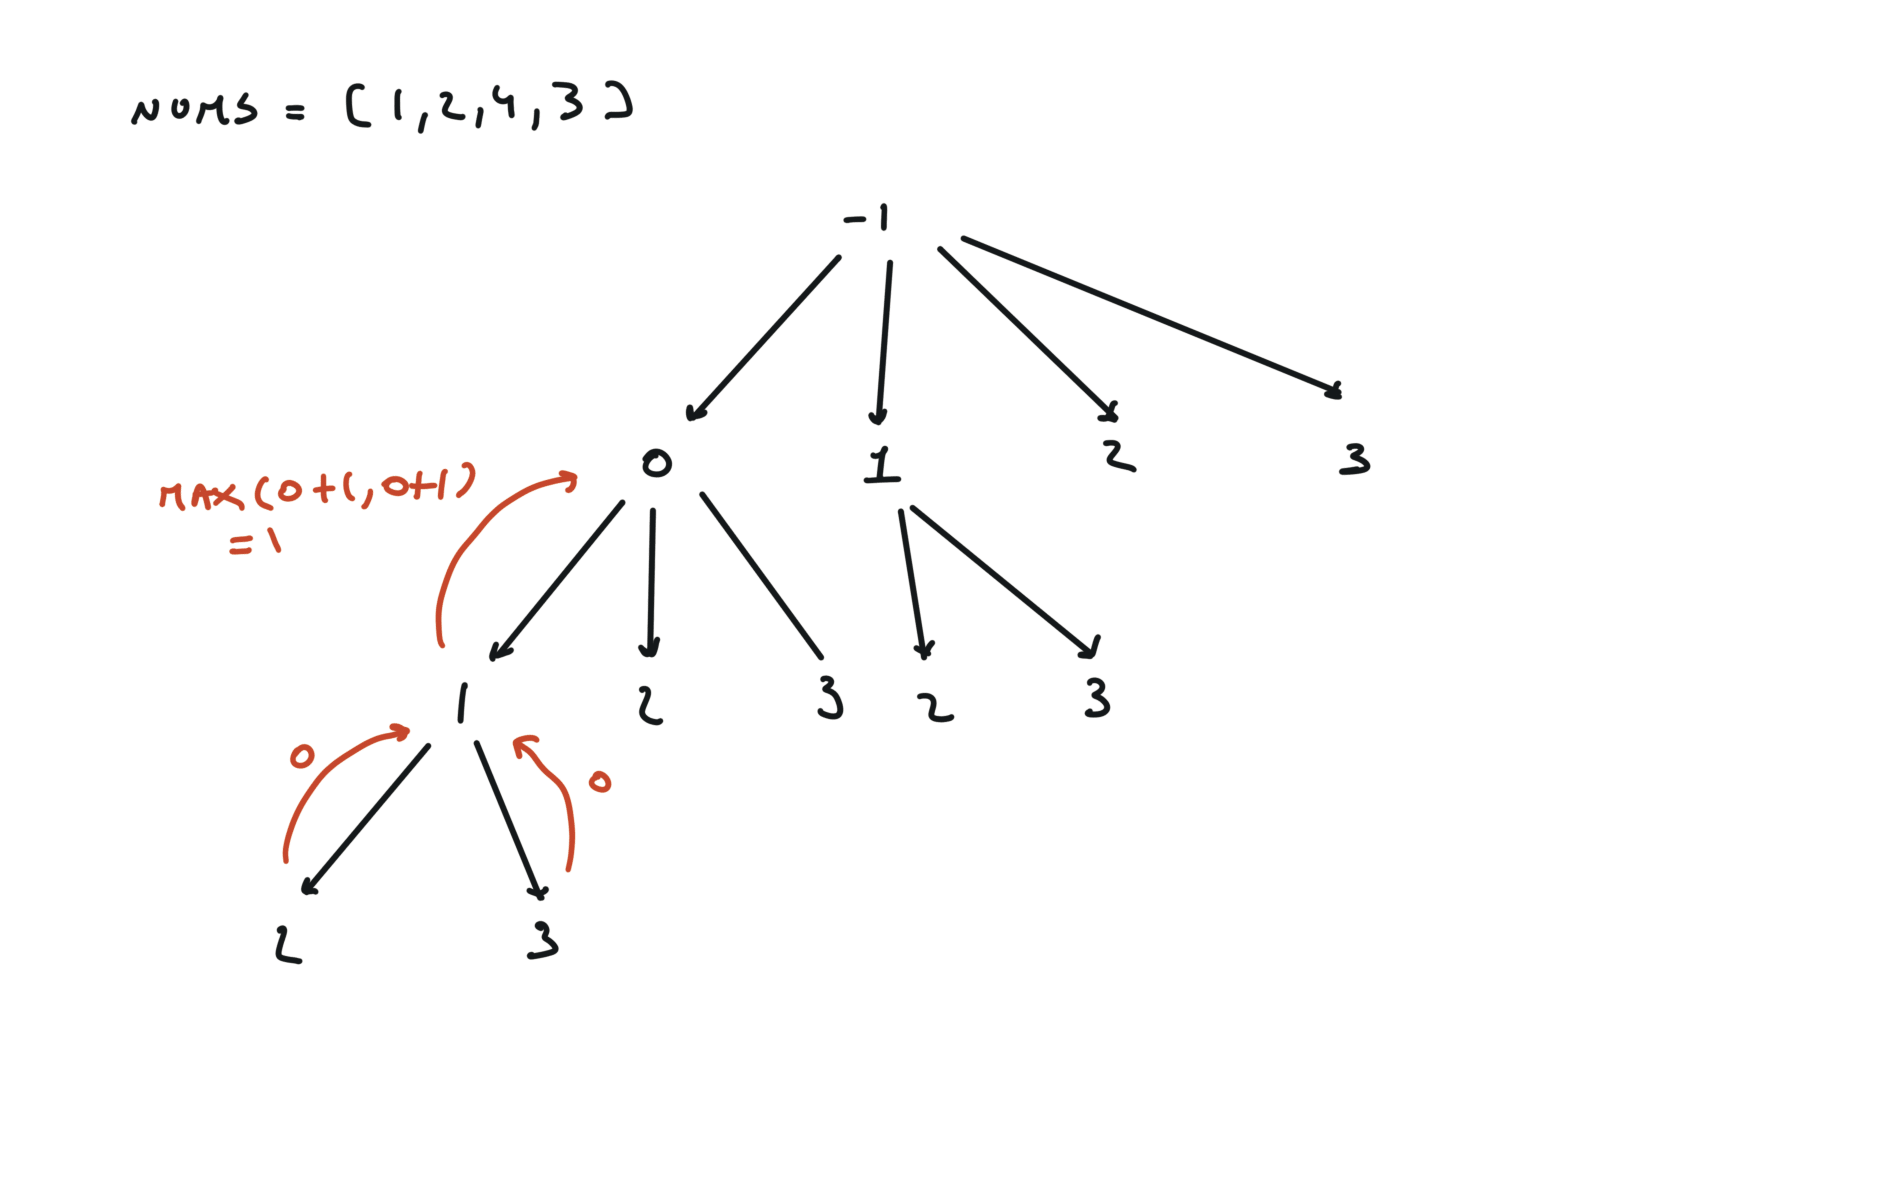 NUMS = [1,2,4,3]
-1
0 1 2 3
MAX(0+1, 0+1)
= 1
1 2 3 2 3
0 0
2 3